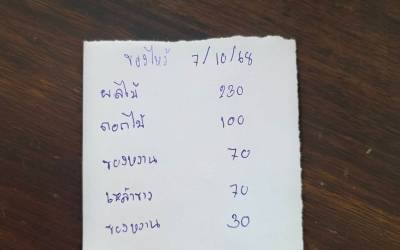 ของไหว้ 7/10/68
ผลไม้ 230
ดอกไม้ 100
ของหวาน 70
เหล้าขาว 70
ของหวาน 30